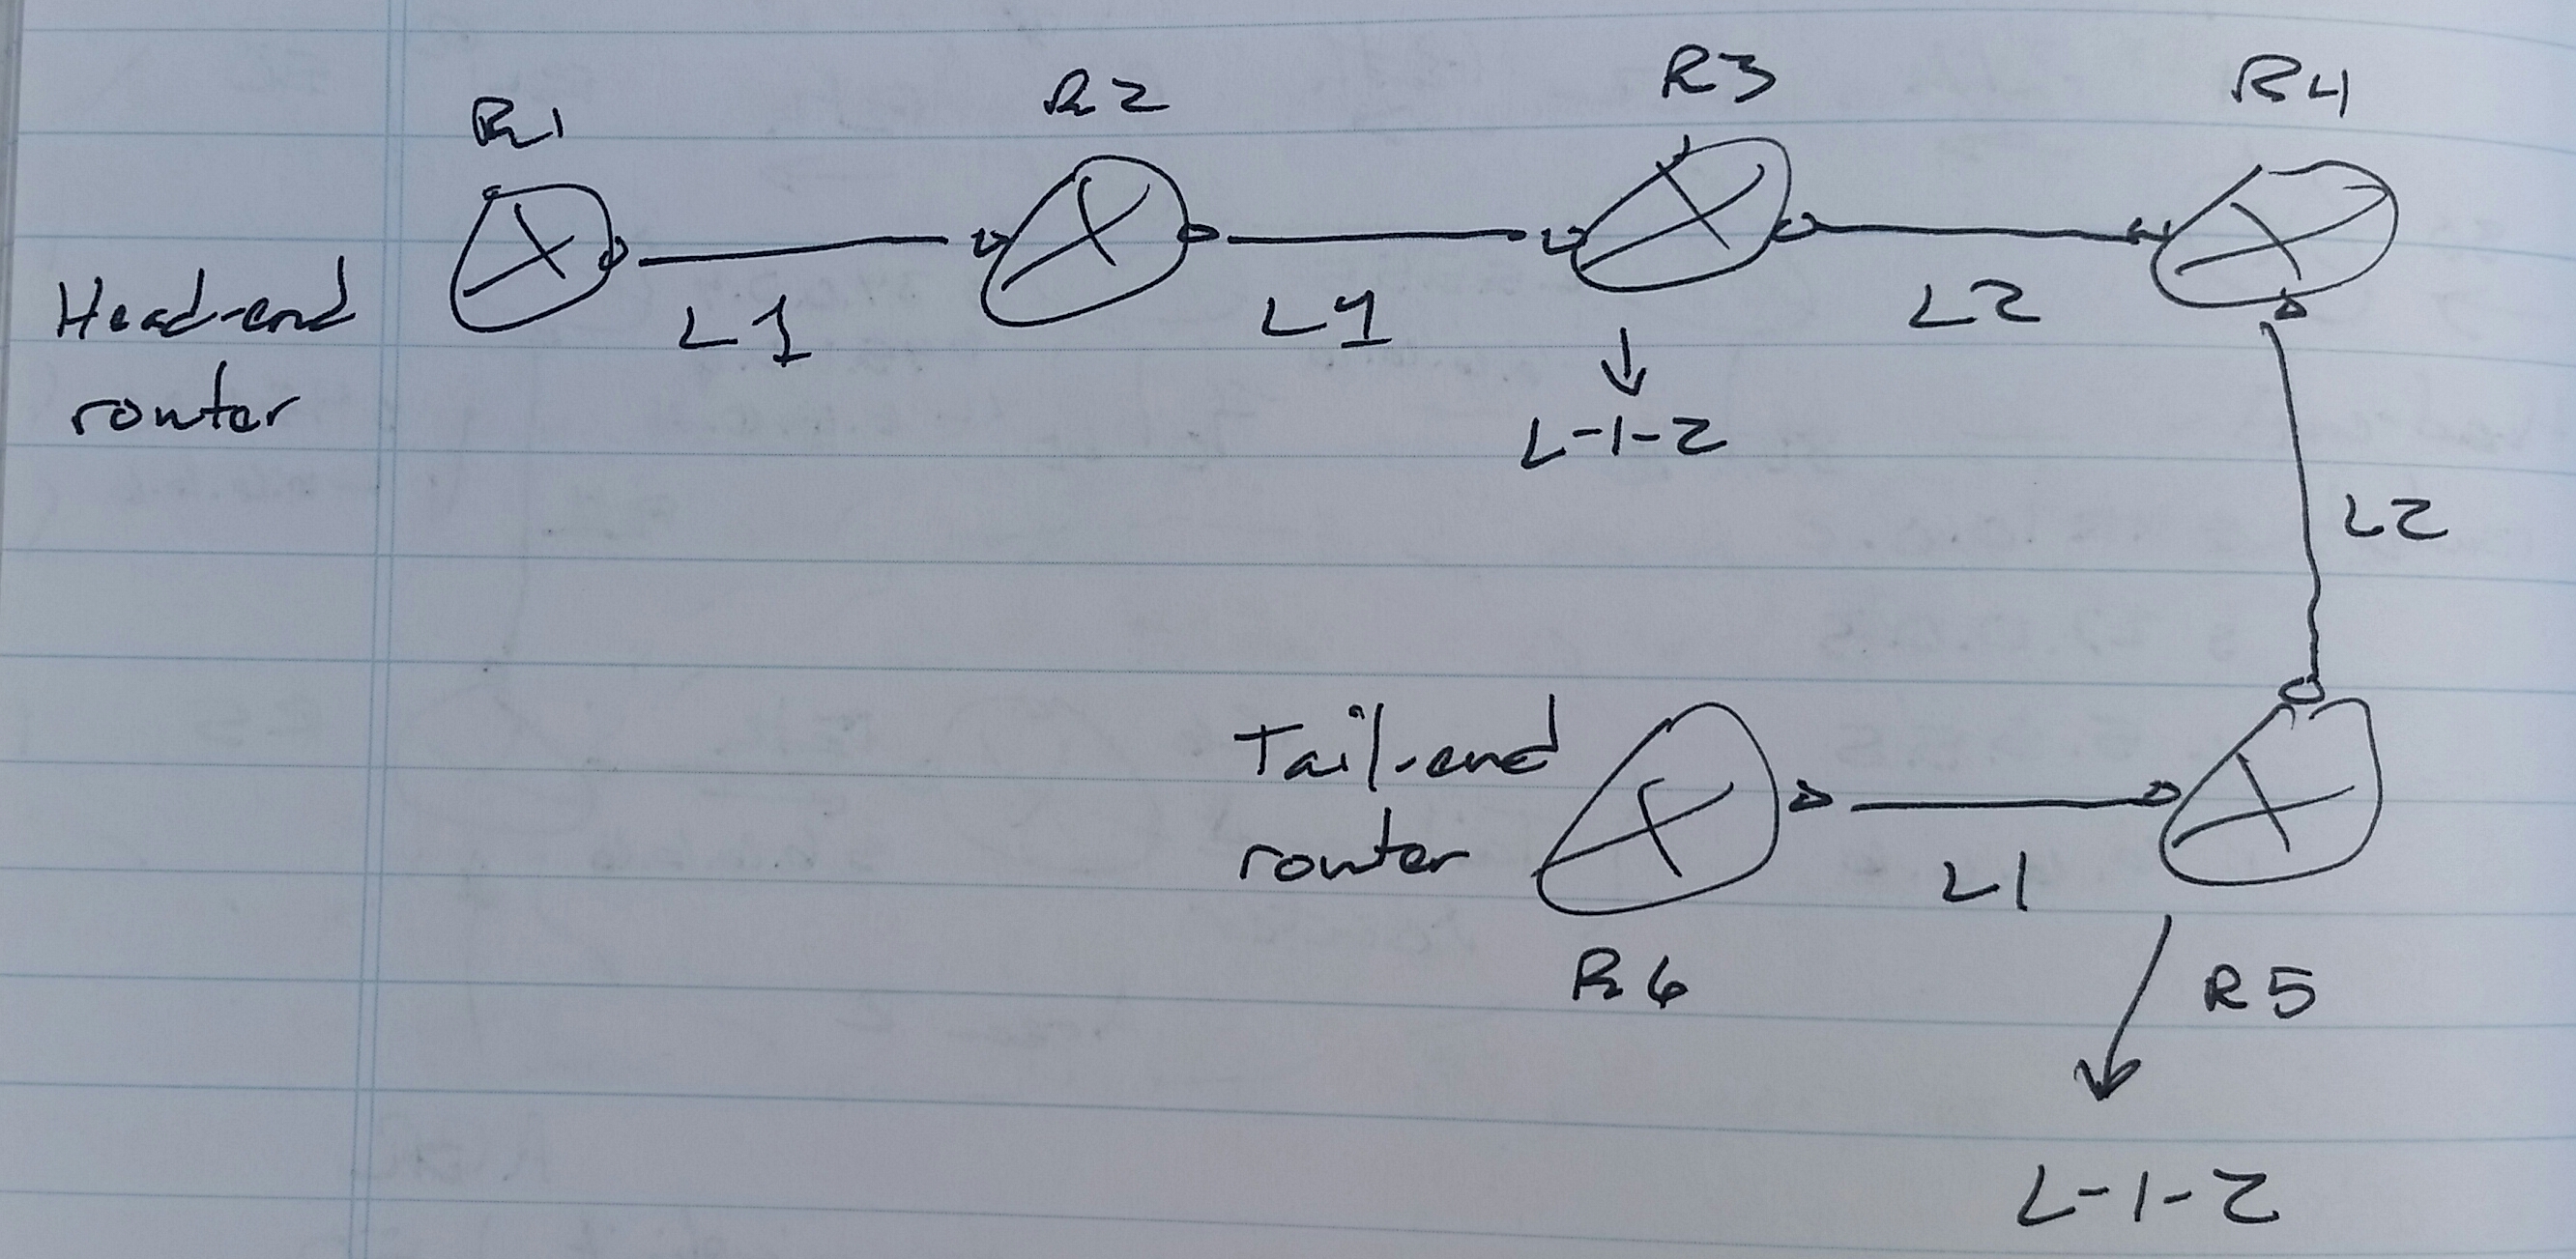 R1
R2
R3
R4
Head-end
router
L1
L1
L2
L-1-2
L2
Tail-end
router
L1
R6
R5
L-1-2